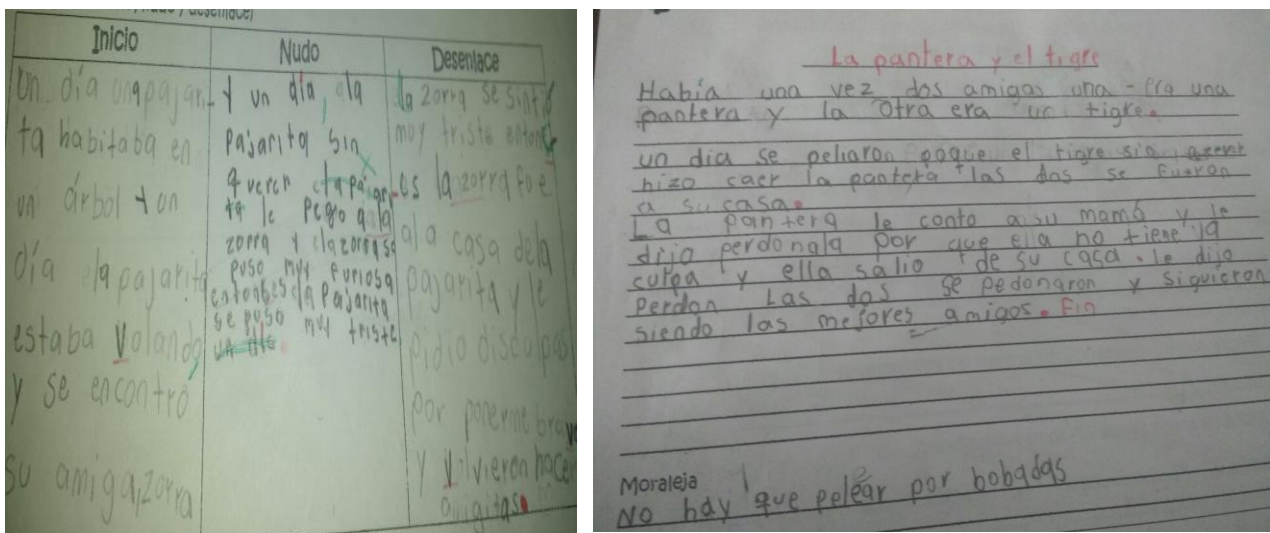 Inicio
Un día una pajari
ta habitaba en
un árbol y un
día ela pajarita
estaba volando
y se encontró
su amiga, zorra
Nudo
Y un día, ala
pajarita sin
querer
ta le pego a la
zorra y ela zorra se
puso muy furiosa
entonses ela pajarita
se puso muy triste
un dia
Desenlace
la zorra se sintió
muy triste entonc
es la zorra fue
ala casa dela
pajarita y le
pidio disculpas
por ponerme brava
y volvieron hacer
amigitas.
La pantera y el tigre
Había una vez dos amigas una - era una
pantera y la otra era un tigre.
un dia se peliaron poque el tigre sin querer
hizo caer la pantera y las dos se fueron
a su casa.
La pantera le conto a su mamá y le
dijo perdonala por que ella no tiene la
culpa y ella salio de su casa. le dijo
perdon Las dos se pedonaron y siguieron
siendo las mejores amigos. Fin
Moraleja
No hay que pelear por bobadas